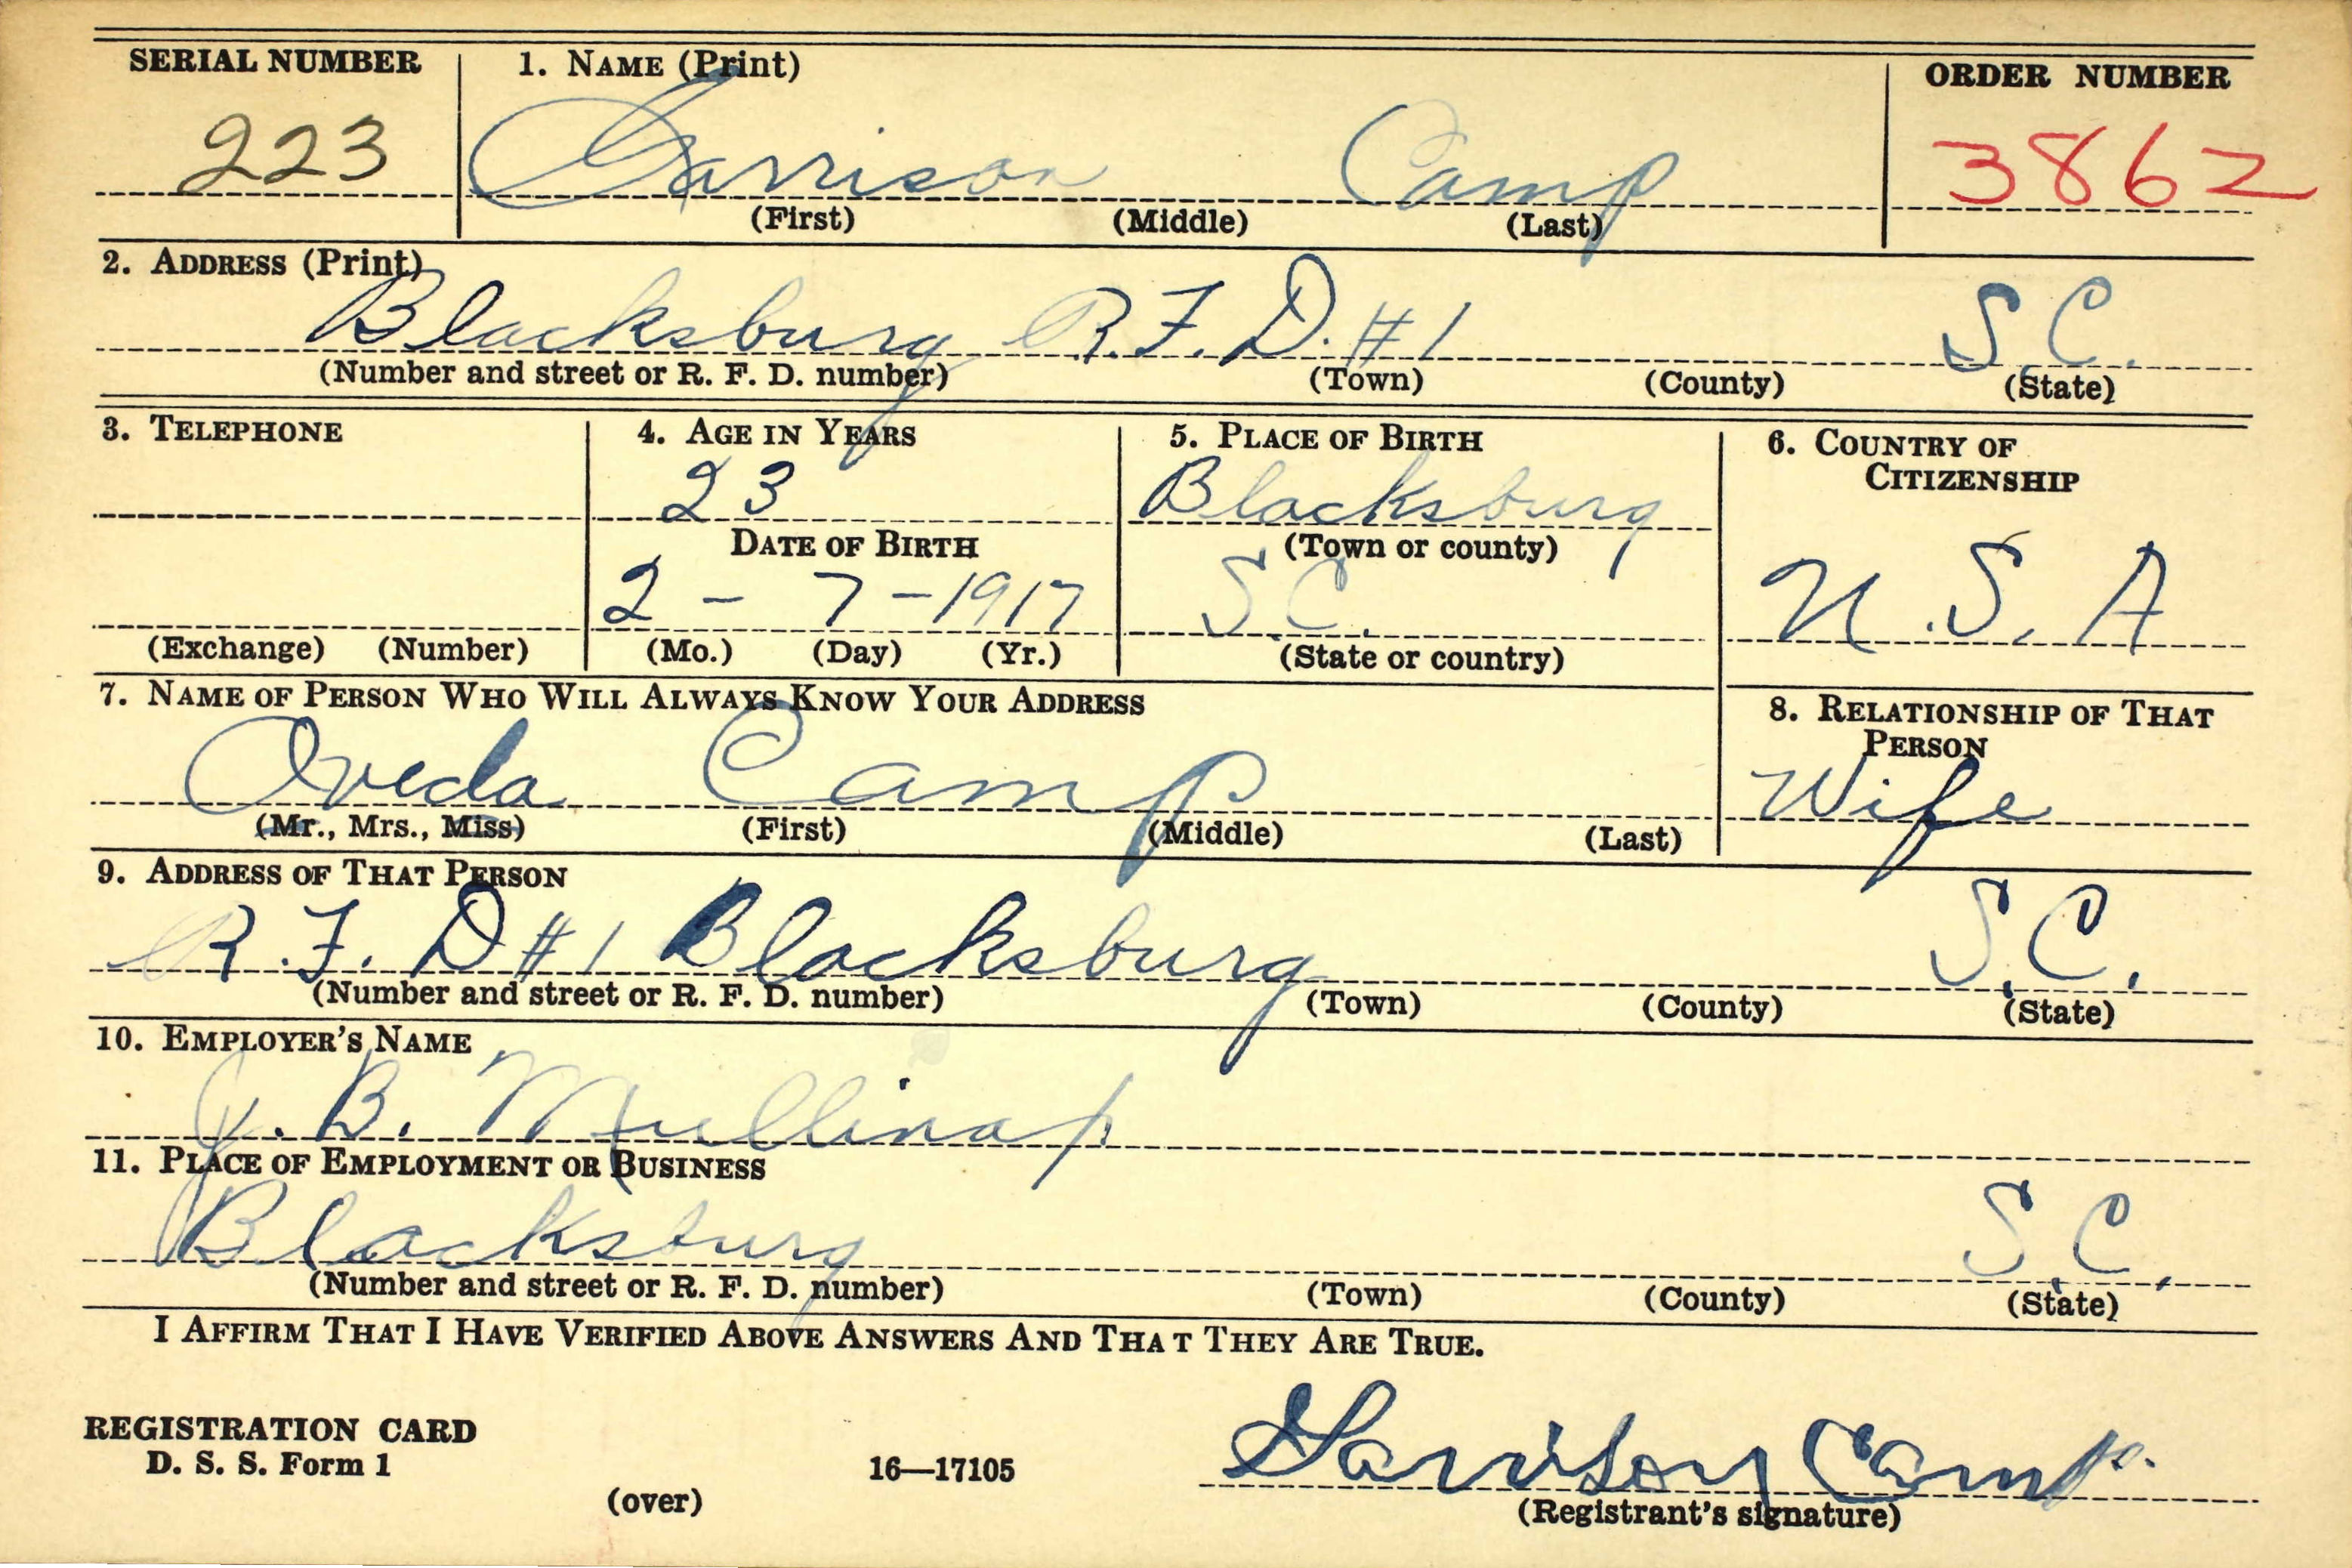 SERIAL NUMBER 1. NAME (Print) ORDER NUMBER
223 Garrison Camp 3862
(First) (Middle) (Last)
2. ADDRESS (Print)
Blacksburg R.F.D. #1 S.C.
(Number and street or R. F. D. number) (Town) (County) (State)
3. TELEPHONE 4. AGE IN YEARS 5. PLACE OF BIRTH 6. COUNTRY OF CITIZENSHIP
23 Blacksburg
DATE OF BIRTH (Town or county)
2 - 7 - 1917 S.C. U.S.A
(Exchange) (Number) (Mo.) (Day) (Yr.) (State or country)
7. NAME OF PERSON WHO WILL ALWAYS KNOW YOUR ADDRESS 8. RELATIONSHIP OF THAT PERSON
Oveda Camp Wife
(Mr., Mrs., Miss) (First) (Middle) (Last)
9. ADDRESS OF THAT PERSON
R.F. D #1 Blacksburg S.C.
(Number and street or R. F. D. number) (Town) (County) (State)
10. EMPLOYER'S NAME
J. B. Mullinap
11. PLACE OF EMPLOYMENT OR BUSINESS
Blacksburg S.C.
(Number and street or R. F. D. number) (Town) (County) (State)
I AFFIRM THAT I HAVE VERIFIED ABOVE ANSWERS AND THAT THEY ARE TRUE.
REGISTRATION CARD
D. S. S. Form 1 16—17105 Garrison Camp.
(over) (Registrant's signature)